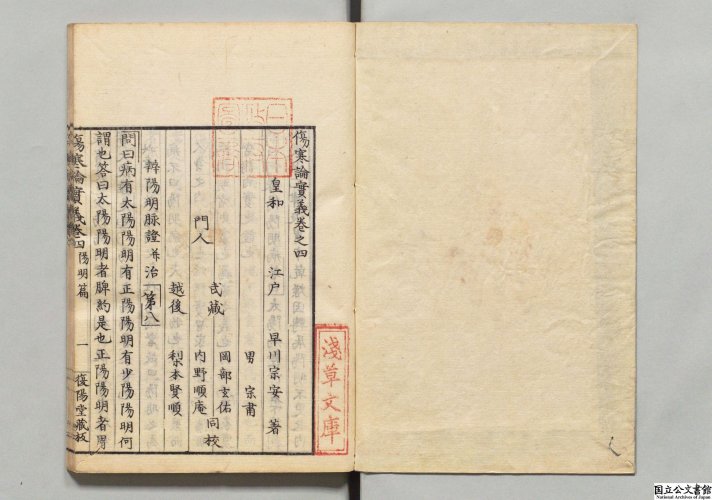 傷寒論實義卷之四
皇和 江戸 早川宗安 著
男 宗甫
門人 武藏 岡部玄佑 同校
内野順庵
越後 梨本賢順
辨陽明脉證并治第八
問曰病有太陽陽明有正陽陽明有少陽陽明何
謂也答曰太陽陽明者脾約是也正陽陽明者胃
傷寒論實義卷四 陽明篇 一 復陽堂藏板
淺草文庫
国立公文書館
National Archives of Japan